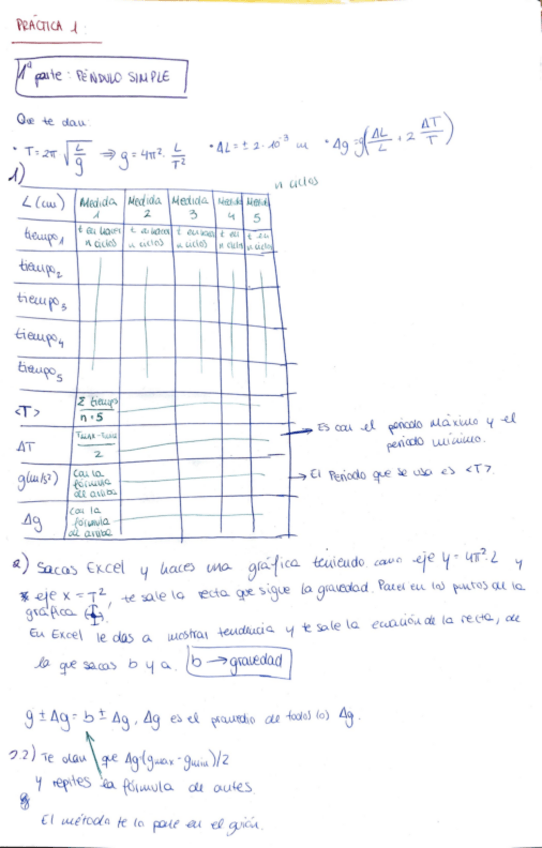 PRÁCTICA 1:
1ª parte: PÉNDULO SIMPLE
Que te dan:
• T = 2π √(L/g) ⇒ g = 4π² · L/T² • ΔL = ± 2·10⁻³ m • Δg = g(ΔL/L + 2 ΔT/T)
1)
n ciclos
L (cm) Medida 1 Medida 2 Medida 3 Medida 4 Medida 5
tiempo₁ t en hacer n ciclos t en hacer n ciclos t en hacer n ciclos t en n ciclos t en n ciclos
tiempo₂
tiempo₃
tiempo₄
tiempo₅
<T> Σ tiempo / n·5
ΔT Tmax - Tmin / 2
→ Es con el periodo máximo y el
periodo mínimo.
g(m/s²) con la fórmula de arriba
→ El Periodo que se usa es <T>
Δg con la fórmula de arriba
2) Sacas Excel y haces una gráfica teniendo como eje y = 4π²·L y
* eje x = T², te sale la recta que sigue la gravedad. Poner en los puntos de la
gráfica
En Excel le das a mostrar tendencia y te sale la ecuación de la recta, de
la que sacas b y a. b → gravedad
g ± Δg = b ± Δg, Δg es el promedio de todos los Δg.
2.2) Te dan que Δg (gmax - gmin)/2
y repites la fórmula de antes.
El método te lo pone en el guión.